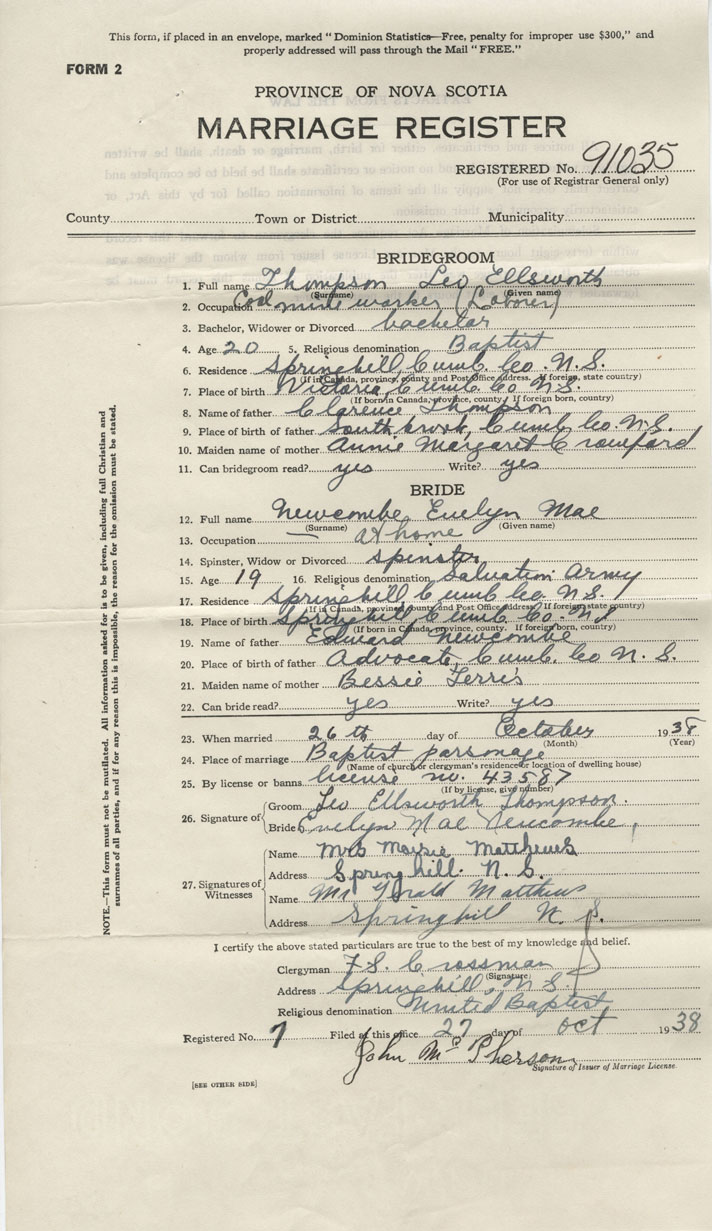 This form, if placed in an envelope, marked "Dominion Statistics—Free, penalty for improper use $300," and
properly addressed will pass through the Mail "FREE."
FORM 2
PROVINCE OF NOVA SCOTIA
MARRIAGE REGISTER
REGISTERED No. 91035
(For use of Registrar General only)
County Town or District Municipality
BRIDEGROOM
1. Full name Thompson Leo Ellsworth
(Surname) (Given name)
2. Occupation Coal mine worker (Laborer)
3. Bachelor, Widower or Divorced bachelor
4. Age 20 5. Religious denomination Baptist
6. Residence Springhill, Cumb. Co. N.S.
(If in Canada, province, county and Post Office address. If foreign, state country)
7. Place of birth Victoria, Cumb. Co. N.S.
(If born in Canada, province, county. If foreign born, country)
8. Name of father Clarence Thompson
9. Place of birth of father Southbrook, Cumb. Co. N.S.
10. Maiden name of mother Annie Margaret Crawford
11. Can bridegroom read? yes Write? yes
BRIDE
12. Full name Newcombe, Evelyn Mae
(Surname) (Given name)
13. Occupation at home
14. Spinster, Widow or Divorced spinster
15. Age 19 16. Religious denomination Salvation Army
17. Residence Springhill, Cumb. Co. N.S.
(If in Canada, province, county and Post Office address. If foreign state country)
18. Place of birth Springhill, Cumb. Co. N.S.
(If born in Canada, province, county. If foreign born, country)
19. Name of father Edward Newcombe
20. Place of birth of father Advocate, Cumb. Co N.S.
21. Maiden name of mother Bessie Ferris
22. Can bride read? yes Write? yes
23. When married 26th day of October 1938
(Month) (Year)
24. Place of marriage Baptist parsonage
(Name of church or clergyman's residence or location of dwelling house)
25. By license or banns license no. 43587
(If by license, give number)
26. Signature of
Groom Leo Ellsworth Thompson.
Bride Evelyn Mae Newcombe
27. Signatures of
Witnesses
Name Mrs Maysie Matthews
Address Springhill N.S.
Name Mr Gerald Matthews
Address Springhill N.S.
I certify the above stated particulars are true to the best of my knowledge and belief.
Clergyman F.S. Crossman
(Signature)
Address Springhill, N.S.
Religious denomination United Baptist
Registered No. 7 Filed at this office 27 day of Oct 1938
John McPherson
Signature of Issuer of Marriage License.
[SEE OTHER SIDE]
NOTE.—This form must not be mutilated. All information asked for is to be given, including full Christian and
surnames of all parties, and if for any reason this is impossible, the reason for the omission must be stated.